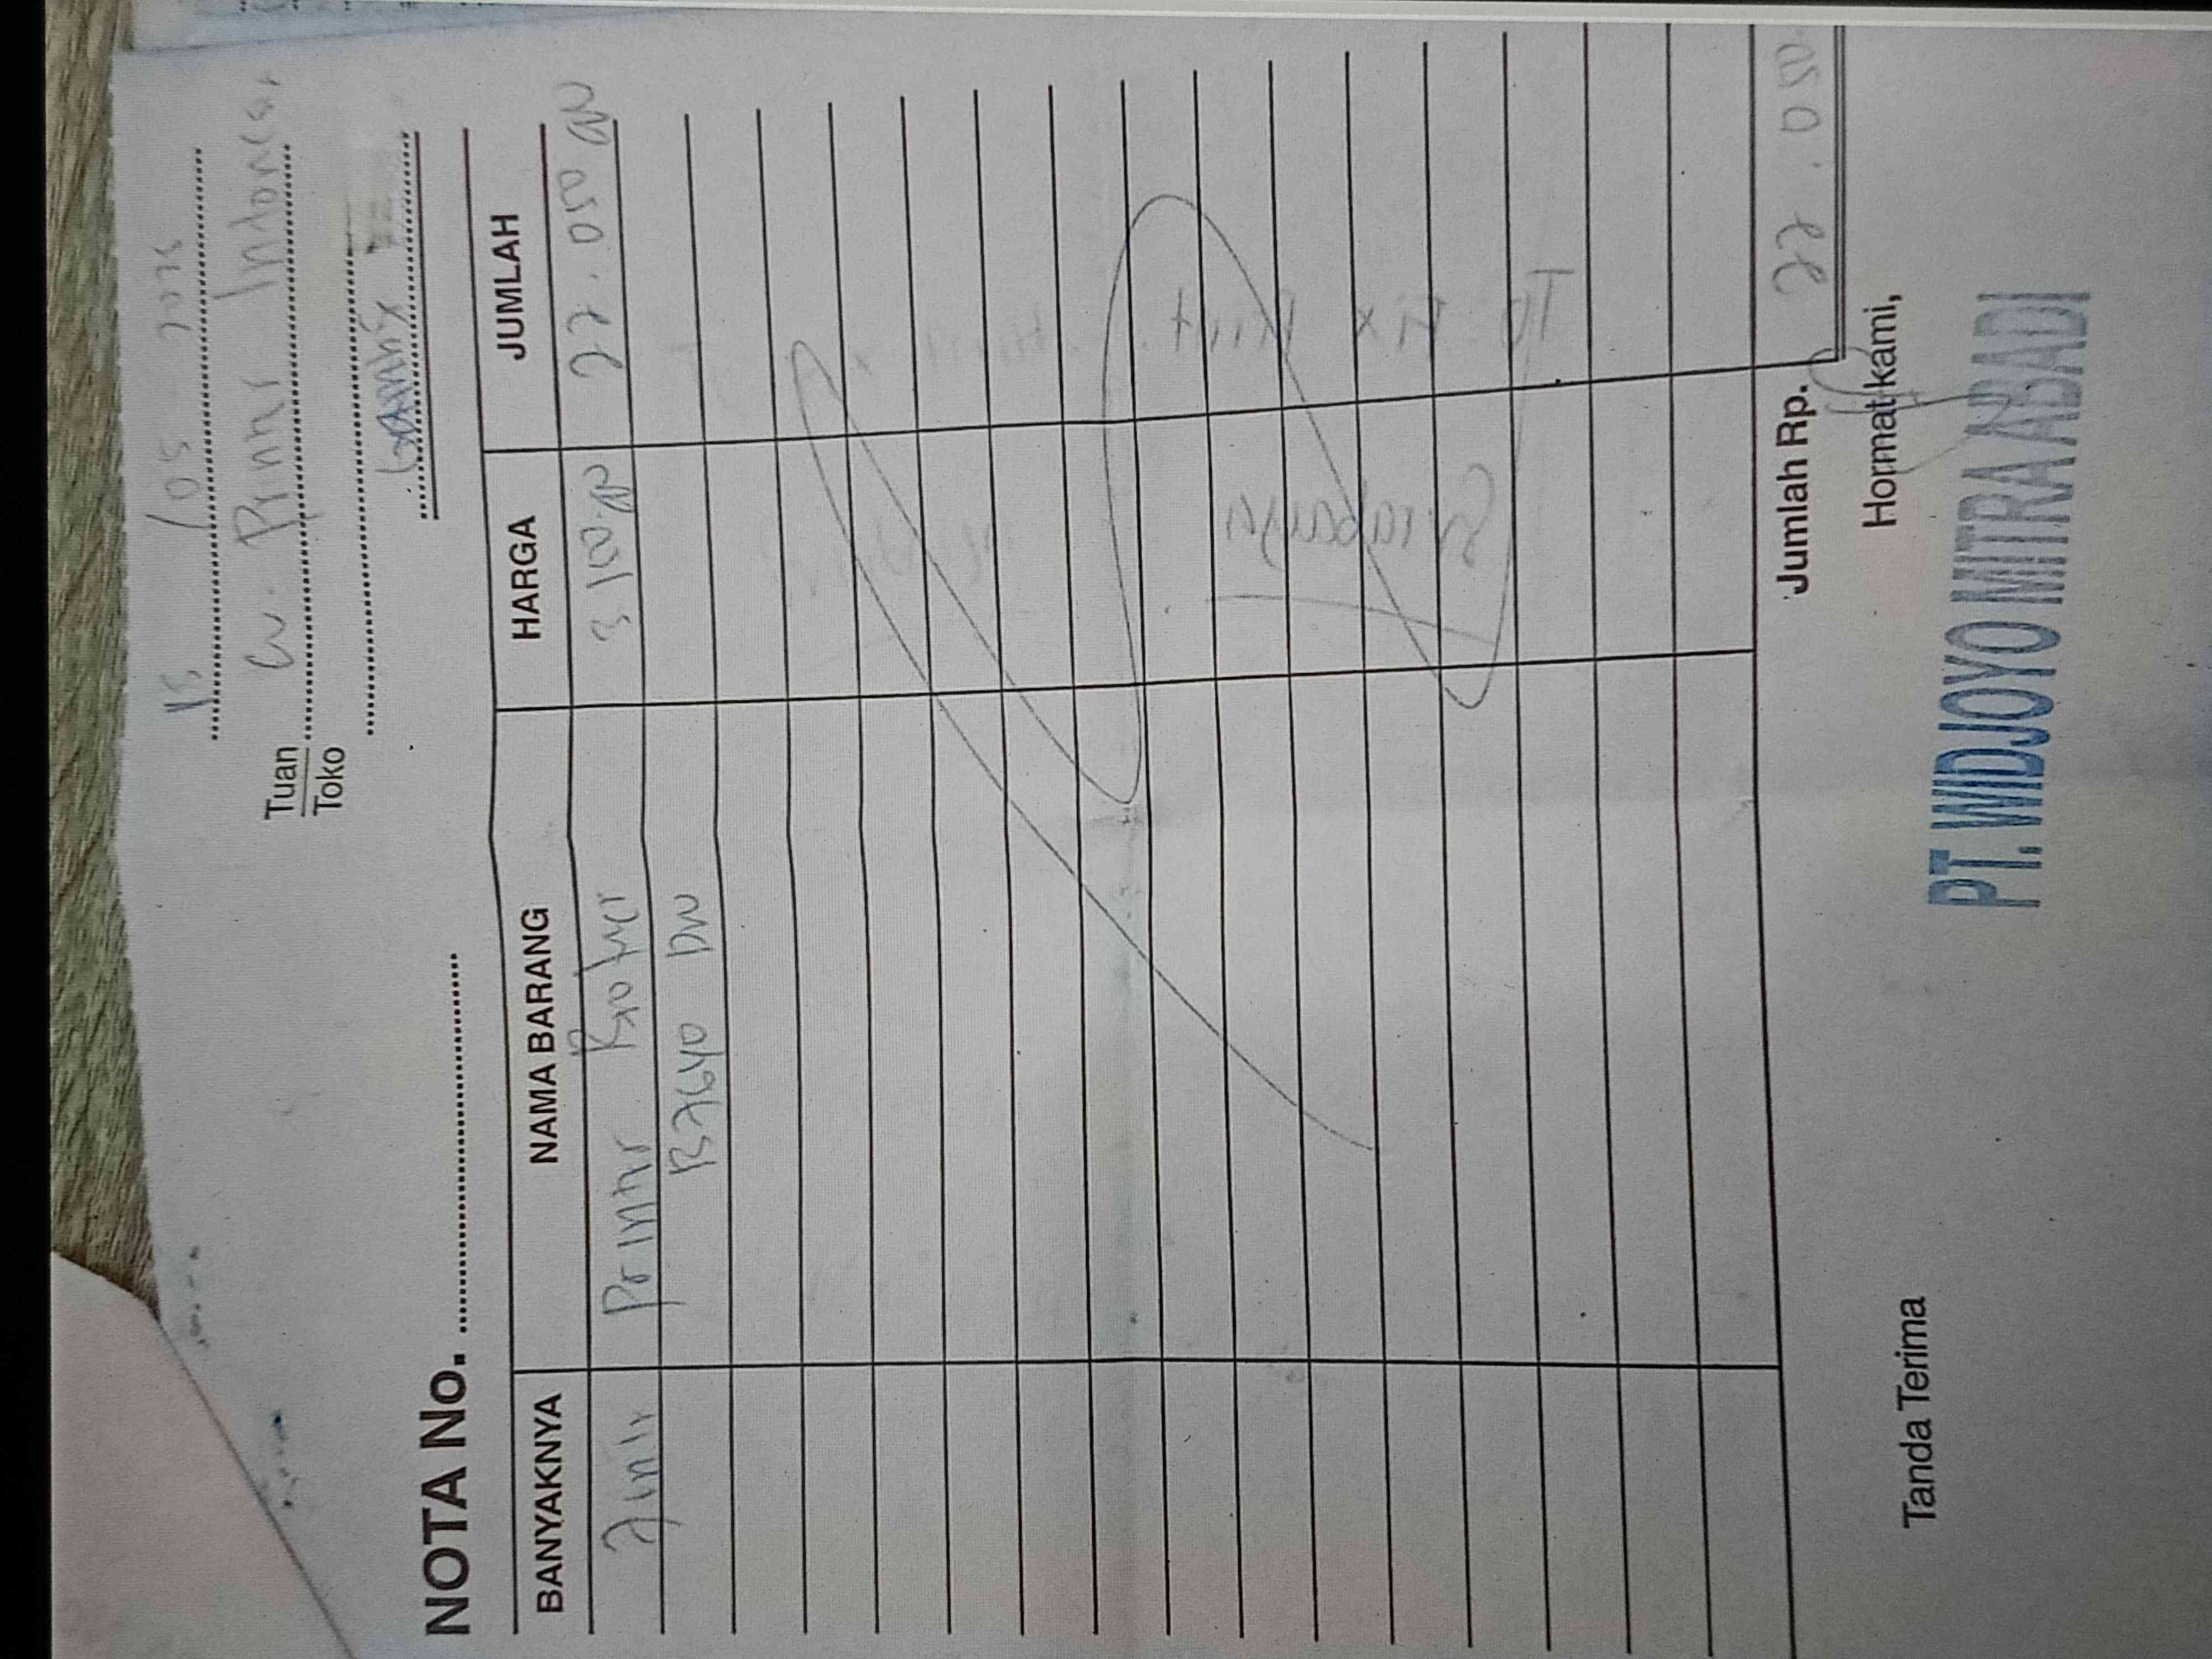 15 / 05 2025
Tuan
Toko
CV. Printer Indonesia
NOTA No.
BANYAKNYA NAMA BARANG HARGA JUMLAH
7 unit Printer Brother 3.150.000 22.050.000
B7640 DW
Jumlah Rp. 22.050
Tanda Terima Hormat kami,
PT. WIDJOYO MITRA ABADI